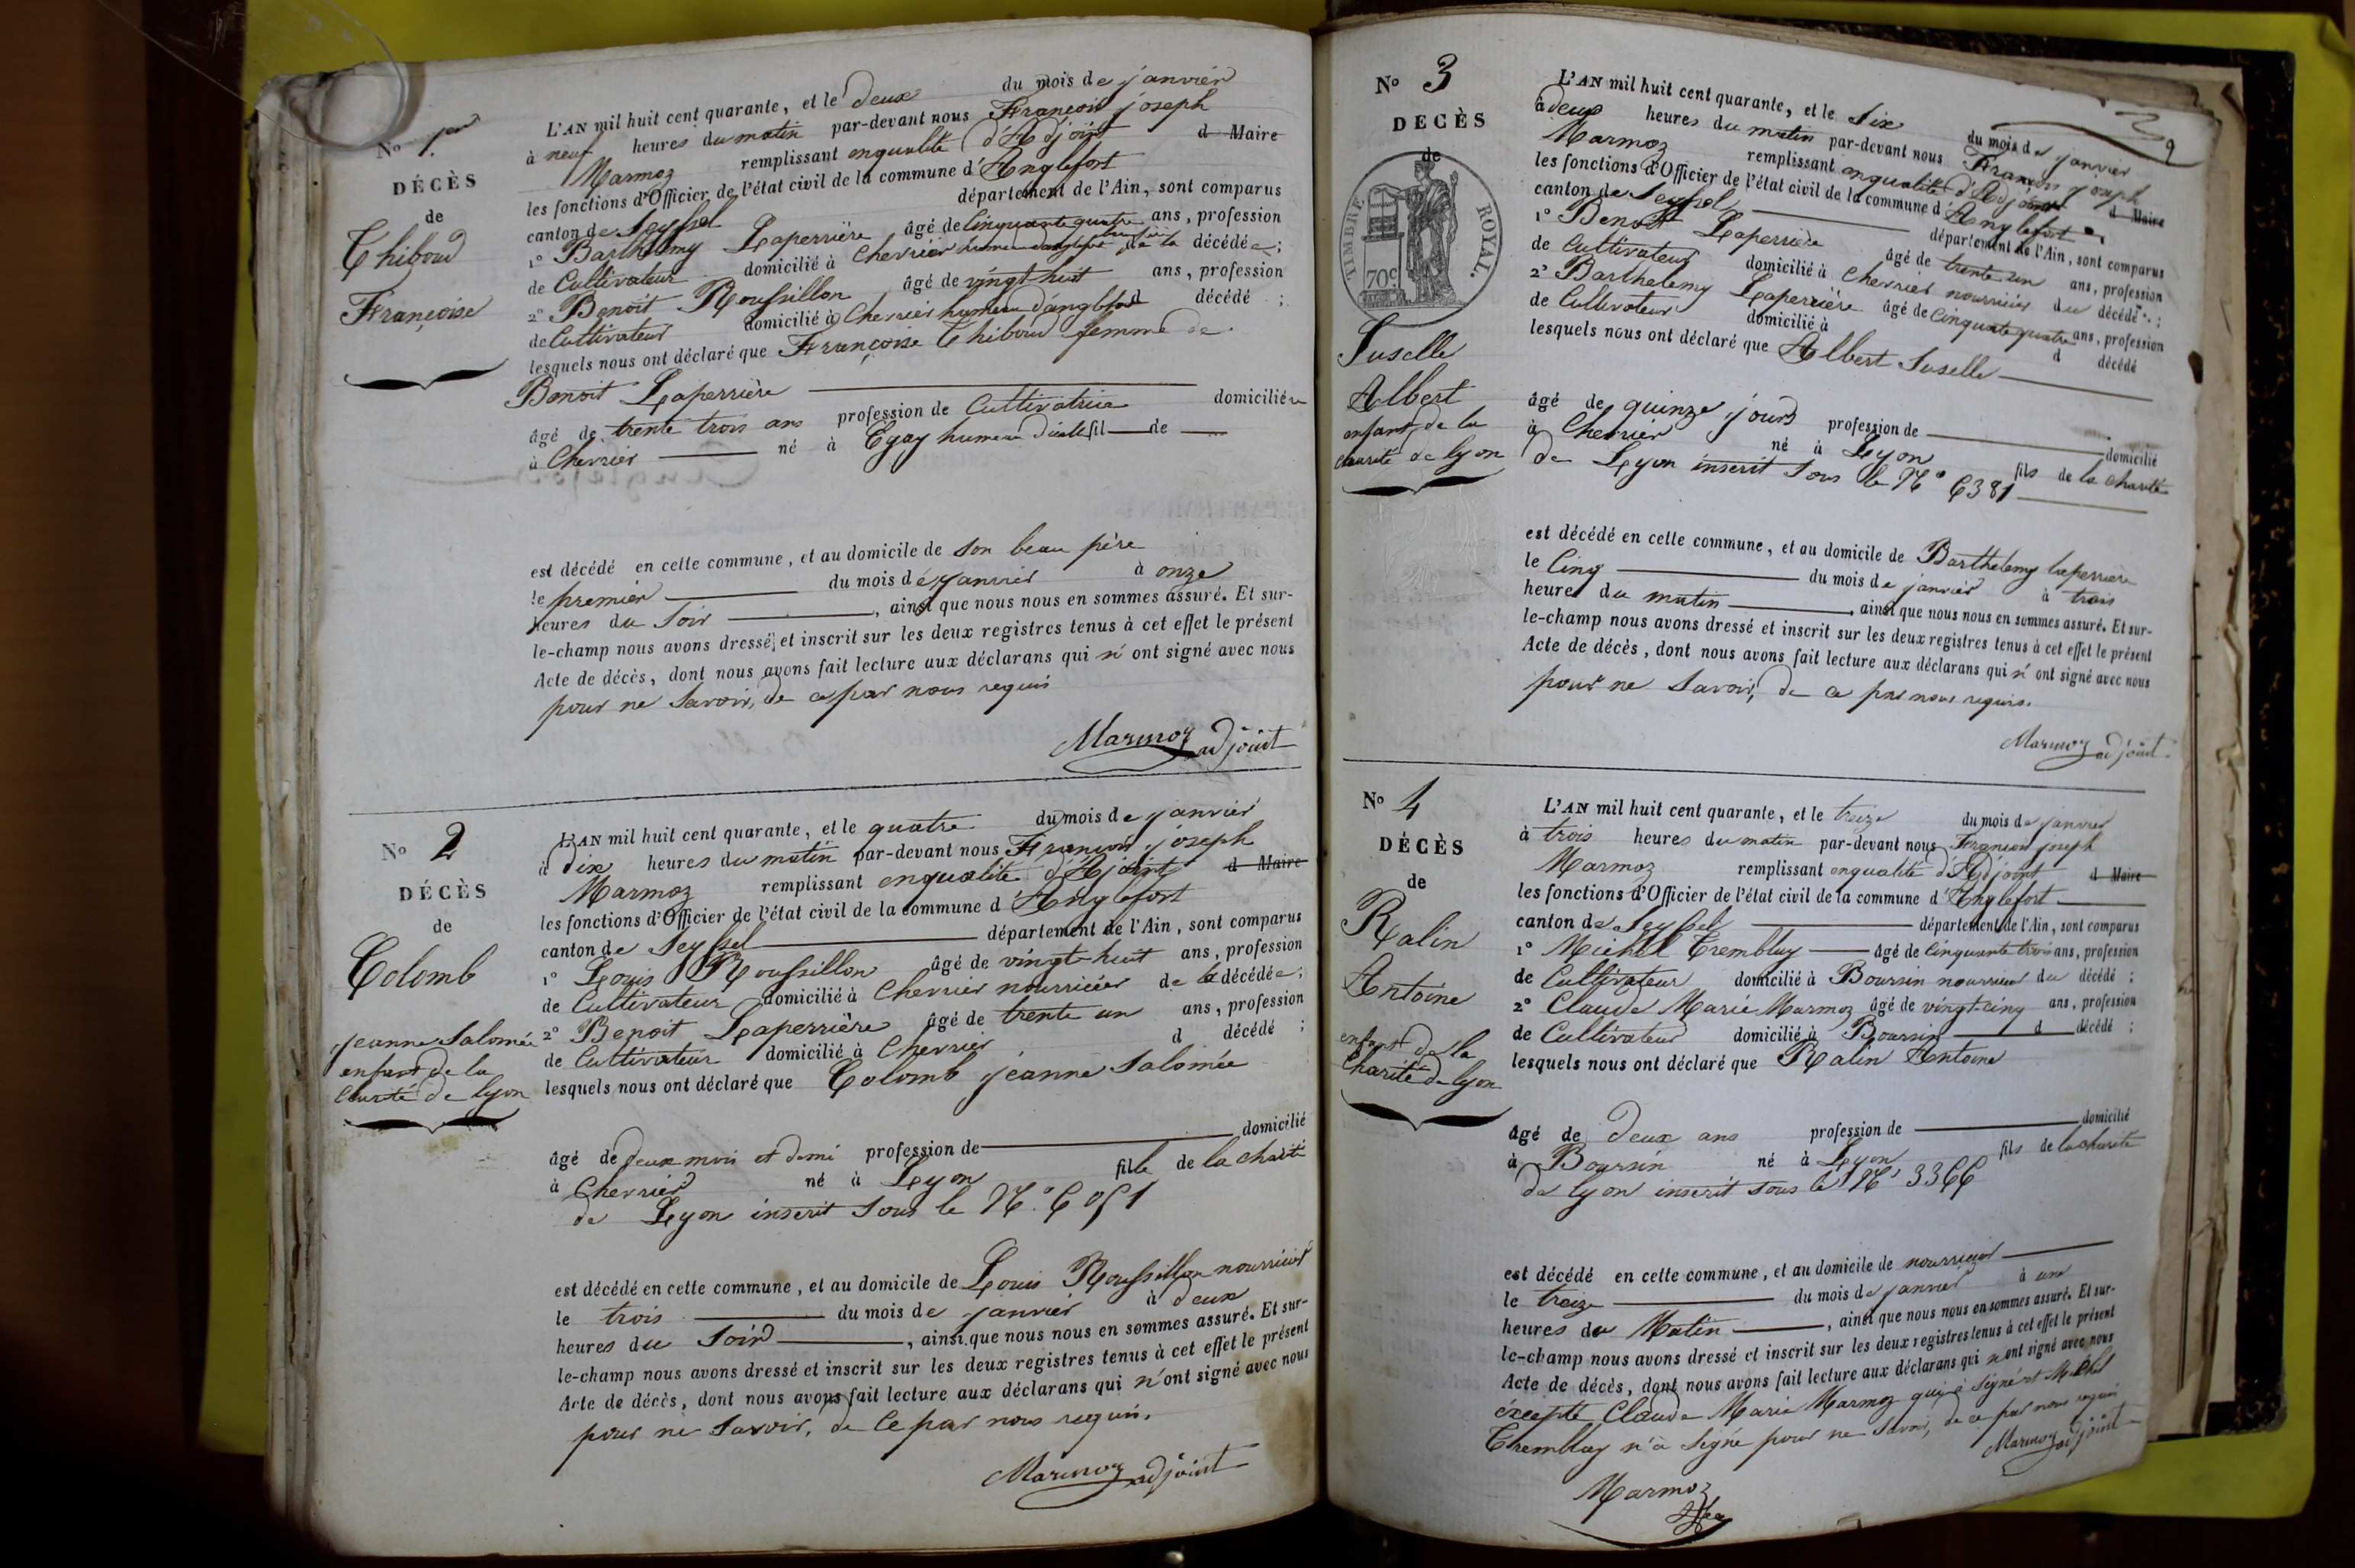 No 1er
DÉCÈS
de
Thiboud
Françoise
L'AN mil huit cent quarante, et le deux du mois de janvier
à neuf heures du matin par-devant nous François joseph
Marmoz remplissant enqualité d'Adjoint d Maire
les fonctions d'Officier de l'état civil de la commune d'Anglefort
canton de Seyssel département de l'Ain, sont comparus
1º Barthelemy Laperrière âgé de Cinquante quatre ans, profession
de Cultivateur domicilié à Chevrier humeau de la décédée;
2º Benoit Roussillon âgé de vingt huit ans, profession
de Cultivateur domicilié à Chevrier humeau d'anglefort décédé ;
lesquels nous ont déclaré que Françoise Thiboud femme de
Benoit Laperrière
âgé de trente trois ans profession de Cultivatrice domiciliée
à Chevrier né à Egay humeau fil de
est décédé en cette commune, et au domicile de son beau père
le premier du mois de janvier à onze
heures du soir , ainsi que nous nous en sommes assuré. Et sur-
le-champ nous avons dressé et inscrit sur les deux registres tenus à cet effet le présent
Acte de décès, dont nous avons fait lecture aux déclarans qui n'ont signé avec nous
pour ne savoir, de ce par nous requis
Marmoz adjoint
No 2
DÉCÈS
de
Colomb
jeanne Salomée
enfant de la
Charité de lyon
L'AN mil huit cent quarante, et le quatre du mois de janvier
à dix heures du matin par-devant nous François joseph
Marmoz remplissant enqualité d'Adjoint d Maire
les fonctions d'Officier de l'état civil de la commune d'Anglefort
canton de Seyssel département de l'Ain, sont comparus
1º Louis Roussillon âgé de vingt-huit ans, profession
de Cultivateur domicilié à Chevrier nourricier de la décédée;
2º Benoit Laperrière âgé de trente un ans, profession
de Cultivateur domicilié à Chevrier d décédé ;
lesquels nous ont déclaré que Colomb jeanne Salomée
âgé de deux mois et demi profession de domicilié
à Chevrier né à Lyon fille de la charité
de Lyon inscrit sous le No 6051
est décédé en cette commune, et au domicile de Louis Roussillon nourricier
le trois du mois de janvier à deux
heures du soir , ainsi que nous nous en sommes assuré. Et sur-
le-champ nous avons dressé et inscrit sur les deux registres tenus à cet effet le présent
Acte de décès, dont nous avons fait lecture aux déclarans qui n'ont signé avec nous
pour ne savoir, de ce par nous requis.
Marmoz adjoint
No 3
DÉCÈS
de
TIMBRE ROYAL.
70c
Suselle
Albert
enfant de la
charité de lyon
L'AN mil huit cent quarante, et le Six du mois de janvier
à deux heures du matin par-devant nous François joseph
Marmoz remplissant enqualité d'Adjoint d Maire
les fonctions d'Officier de l'état civil de la commune d'Anglefort
canton de Seyssel département de l'Ain, sont comparus
1º Benoit Laperrière âgé de trente un ans, profession
de Cultivateur domicilié à Chevrier nourricier du décédé ;
2º Barthelemy Laperrière âgé de Cinquante quatre ans, profession
de Cultivateur domicilié à d décédé
lesquels nous ont déclaré que Albert Suselle
âgé de quinze jours profession de domicilié
à Chevrier né à Lyon fils de la charité
de Lyon inscrit sous le No 6381
est décédé en cette commune, et au domicile de Barthelemy laperrière
le Cinq du mois de janvier à trois
heures du matin , ainsi que nous nous en sommes assuré. Et sur-
le-champ nous avons dressé et inscrit sur les deux registres tenus à cet effet le présent
Acte de décès, dont nous avons fait lecture aux déclarans qui n'ont signé avec nous
pour ne savoir, de ce par nous requis.
Marmoz adjoint
No 4
DÉCÈS
de
Ralin
Antoine
enfant de la
Charité de lyon
L'AN mil huit cent quarante, et le treize du mois de janvier
à trois heures du matin par-devant nous François joseph
Marmoz remplissant enqualité d'Adjoint d Maire
les fonctions d'Officier de l'état civil de la commune d'Anglefort
canton de Seyssel département de l'Ain, sont comparus
1º Michel Tremblay âgé de Cinquante trois ans, profession
de Cultivateur domicilié à Boursin nourricier du décédé ;
2º Claude Marie Marmoz âgé de vingt-cinq ans, profession
de Cultivateur domicilié à Boursin d décédé ;
lesquels nous ont déclaré que Ralin Antoine
âgé de deux ans profession de domicilié
à Boursin né à Lyon fils de la charité
de lyon inscrit sous le No 3366
est décédé en cette commune, et au domicile de nourricier
le treize du mois de janvier à une
heures du Matin , ainsi que nous nous en sommes assuré. Et sur-
le-champ nous avons dressé et inscrit sur les deux registres tenus à cet effet le présent
Acte de décès, dont nous avons fait lecture aux déclarans qui n'ont signé avec nous
excepté Claude Marie Marmoz qui a signé et Michel
Tremblay n'a signé pour ne savoir, de ce par nous requis
Marmoz adjoint
Marmoz